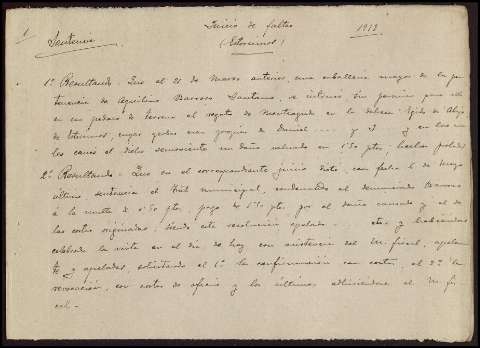 1
Juicio de faltas
1913
Sentencia
(Estorninos)
1º Resultando. Que el 21 de Marzo anterior, una caballería mayor de la per
tenencia de Aquilino Barroso Santano, se introdujo sin permiso para ello
en un pedazo de terreno al
de Estorninos, cuyas yerbas eran propias de Daniel ... y en los
los cuales el dicho semoviente un daño valorado en 1'50 ptas, hechos probados
2º Resultando. Que en el correspondiente juicio dictó, con fecha 6 de Mayo
último sentencia el Trib. municipal, condenando al denunciado Barroso
á la multa de ptas, pago de ptas, por el daño causado y al de
las costas originadas, siendo esta resolución apelada ... etc. y habiéndose
celebrado la vista en el día de hoy con asistencia del M. fiscal, apelan
te y apelados, solicitando el 1º la confirmación con costas, el 2º la
revocación, con costas de oficio y los últimos adhiriéndose al M. fis
cal.-